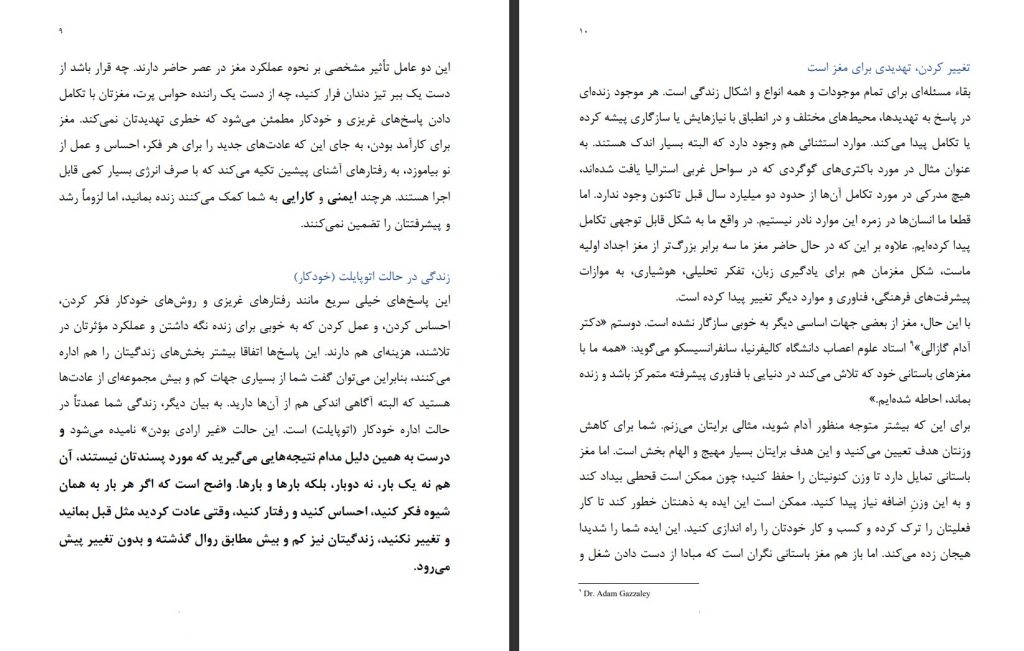 ۹
این دو عامل تأثیر مشخصی بر نحوه عملکرد مغز در عصر حاضر دارند. چه قرار باشد از
دست یک ببر تیز دندان فرار کنید، چه از دست یک راننده حواس پرت، مغزتان با تکامل
دادن پاسخ‌های غریزی و خودکار مطمئن می‌شود که خطری تهدیدتان نمی‌کند. مغز
برای کارآمد بودن، به جای این که عادت‌های جدید را برای هر فکر، احساس و عمل از
نو بیاموزد، به رفتارهای آشنای پیشین تکیه می‌کند که با صرف انرژی بسیار کمی قابل
اجرا هستند. هرچند ایمنی و کارایی به شما کمک می‌کنند زنده بمانید، اما لزوماً رشد
و پیشرفتتان را تضمین نمی‌کنند.
زندگی در حالت اتوپایلت (خودکار)
این پاسخ‌های خیلی سریع مانند رفتارهای غریزی و روش‌های خودکار فکر کردن،
احساس کردن، و عمل کردن که به خوبی برای زنده نگه داشتن و عملکرد مؤثرتان در
تلاشند، هزینه‌ای هم دارند. این پاسخ‌ها اتفاقا بیشتر بخش‌های زندگیتان را هم اداره
می‌کنند، بنابراین می‌توان گفت شما از بسیاری جهات کم و بیش مجموعه‌ای از عادت‌ها
هستید که البته آگاهی اندکی هم از آن‌ها دارید. به بیان دیگر، زندگی شما عمدتاً در
حالت اداره خودکار (اتوپایلت) است. این حالت «غیر ارادی بودن» نامیده می‌شود و
درست به همین دلیل مدام نتیجه‌هایی می‌گیرید که مورد پسندتان نیستند، آن
هم نه یک بار، نه دوبار، بلکه بارها و بارها. واضح است که اگر هر بار به همان
شیوه فکر کنید، احساس کنید و رفتار کنید، وقتی عادت کردید مثل قبل بمانید
و تغییر نکنید، زندگیتان نیز کم و بیش مطابق روال گذشته و بدون تغییر پیش
می‌رود.
۱۰
تغییر کردن، تهدیدی برای مغز است
بقاء مسئله‌ای برای تمام موجودات و همه انواع و اشکال زندگی است. هر موجود زنده‌ای
در پاسخ به تهدیدها، محیط‌های مختلف و در انطباق با نیازهایش یا سازگاری پیشه کرده
یا تکامل پیدا می‌کند. موارد استثنائی هم وجود دارد که البته بسیار اندک هستند. به
عنوان مثال در مورد باکتری‌های گوگردی که در سواحل غربی استرالیا یافت شده‌اند،
هیچ مدرکی در مورد تکامل آن‌ها از حدود دو میلیارد سال قبل تاکنون وجود ندارد. اما
قطعا ما انسان‌ها در زمره این موارد نادر نیستیم. در واقع ما به شکل قابل توجهی تکامل
پیدا کرده‌ایم. علاوه بر این که در حال حاضر مغز ما سه برابر بزرگ‌تر از مغز اجداد اولیه
ماست، شکل مغزمان هم برای یادگیری زبان، تفکر تحلیلی، هوشیاری، به موازات
پیشرفت‌های فرهنگی، فناوری و موارد دیگر تغییر پیدا کرده است.
با این حال، مغز از بعضی جهات اساسی دیگر به خوبی سازگار نشده است. دوستم «دکتر
آدام گازالی»۹ استاد علوم اعصاب دانشگاه کالیفرنیا، سانفرانسیسکو می‌گوید: «همه ما با
مغزهای باستانی خود که تلاش می‌کند در دنیایی با فناوری پیشرفته متمرکز باشد و زنده
بماند، احاطه شده‌ایم.»
برای این که بیشتر متوجه منظور آدام شوید، مثالی برایتان می‌زنم. شما برای کاهش
وزنتان هدف تعیین می‌کنید و این هدف برایتان بسیار مهیج و الهام بخش است. اما مغز
باستانی تمایل دارد تا وزن کنونیتان را حفظ کنید؛ چون ممکن است قحطی بیداد کند
و به این وزنِ اضافه نیاز پیدا کنید. ممکن است این ایده به ذهنتان خطور کند تا کار
فعلیتان را ترک کرده و کسب و کار خودتان را راه اندازی کنید. این ایده شما را شدیدا
هیجان زده می‌کند. اما باز هم مغز باستانی نگران است که مبادا از دست دادن شغل و
۹ Dr. Adam Gazzaley